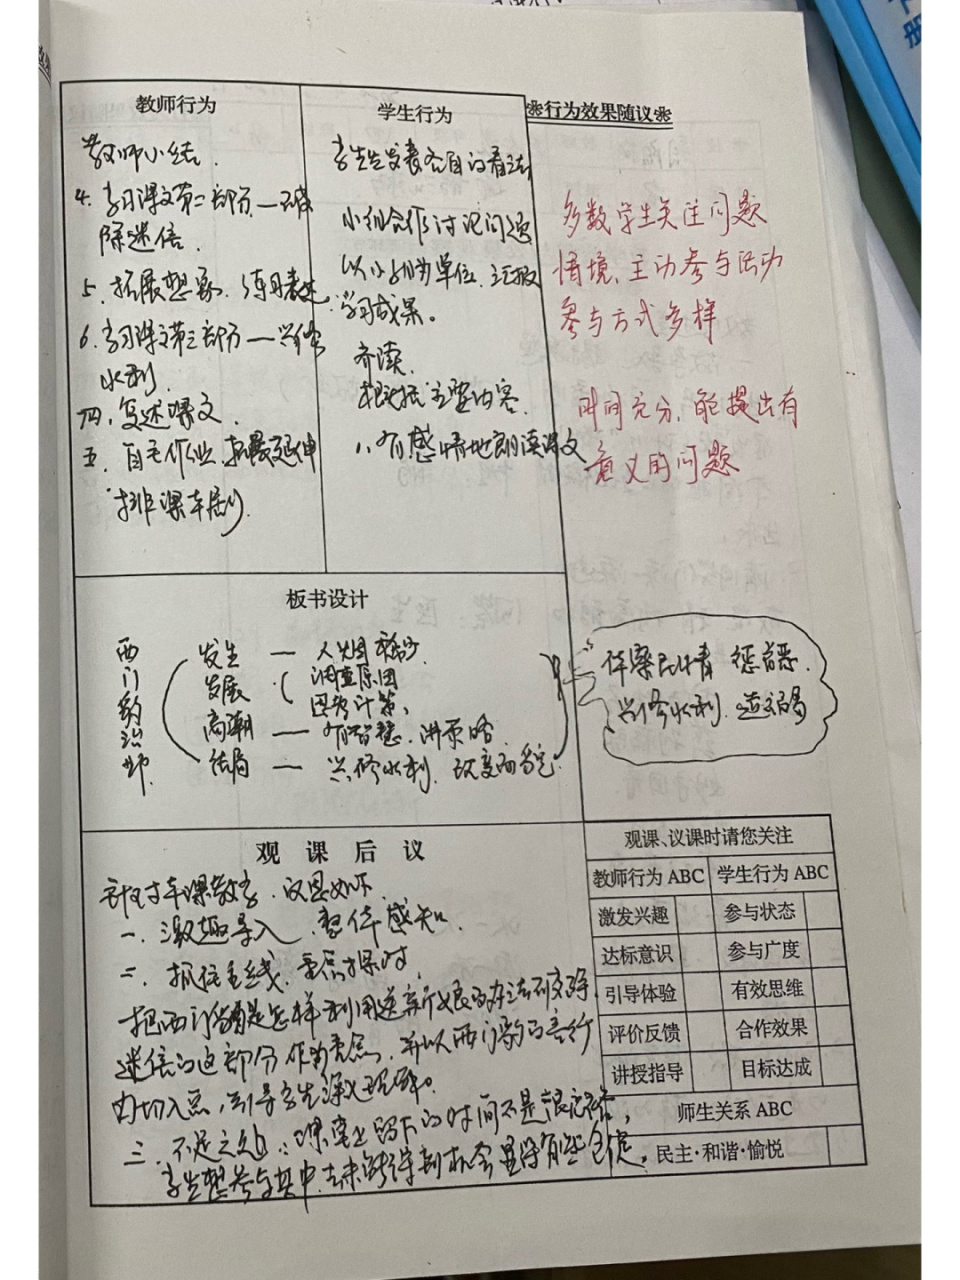 教师行为
教师小结.
4.学习课文第二部分—破
除迷信.
5.拓展想象.练习表达.
6.学习课文第三部分—兴修
水利.
四.复述课文
五.自主作业.拓展延伸
排课本剧.
学生行为
学生发表各自的看法
小组合作讨论问题
以小组为单位.汇报
学习成果。
齐读.
概括主要内容.
有感情地朗读课文
❀行为效果随议❀
多数学生关注问题
情境.主动参与活动
参与方式多样
时间充分.能提出有
意义的问题
板书设计
西门豹治邺
发生 — 人烟稀少.
发展 调查原因
因势计策.
高潮 — 有智慧.讲策略.
结局 — 兴修水利.改变面貌.
体察民情 惩首恶.
兴修水利.造福
观课后议
针对本课教学.议思如下
一.激趣导入.整体感知.
二.抓住主线.重点探讨.
把西门豹是怎样利用送新娘的办法破除
迷信的这部分作为重点.并以西门豹的言行
为切入点,引导学生深入理解。
三.不足之处:课堂上留下的时间不是很充裕,
学生想参与其中.却未能得到机会显得有些仓促.
观课、议课时请您关注
教师行为 ABC 学生行为 ABC
激发兴趣 参与状态
达标意识 参与广度
引导体验 有效思维
评价反馈 合作效果
讲授指导 目标达成
师生关系 ABC
民主·和谐·愉悦